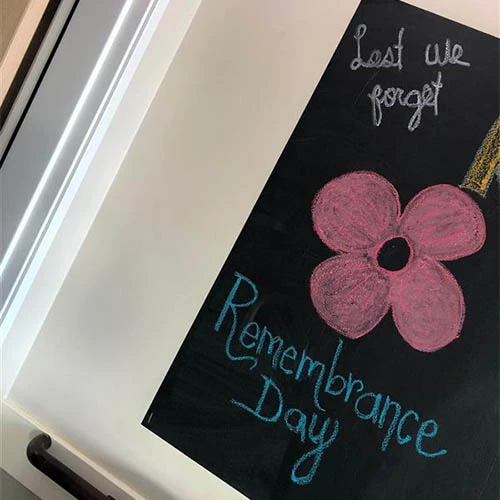 Lest we
forget
Remembrance
Day